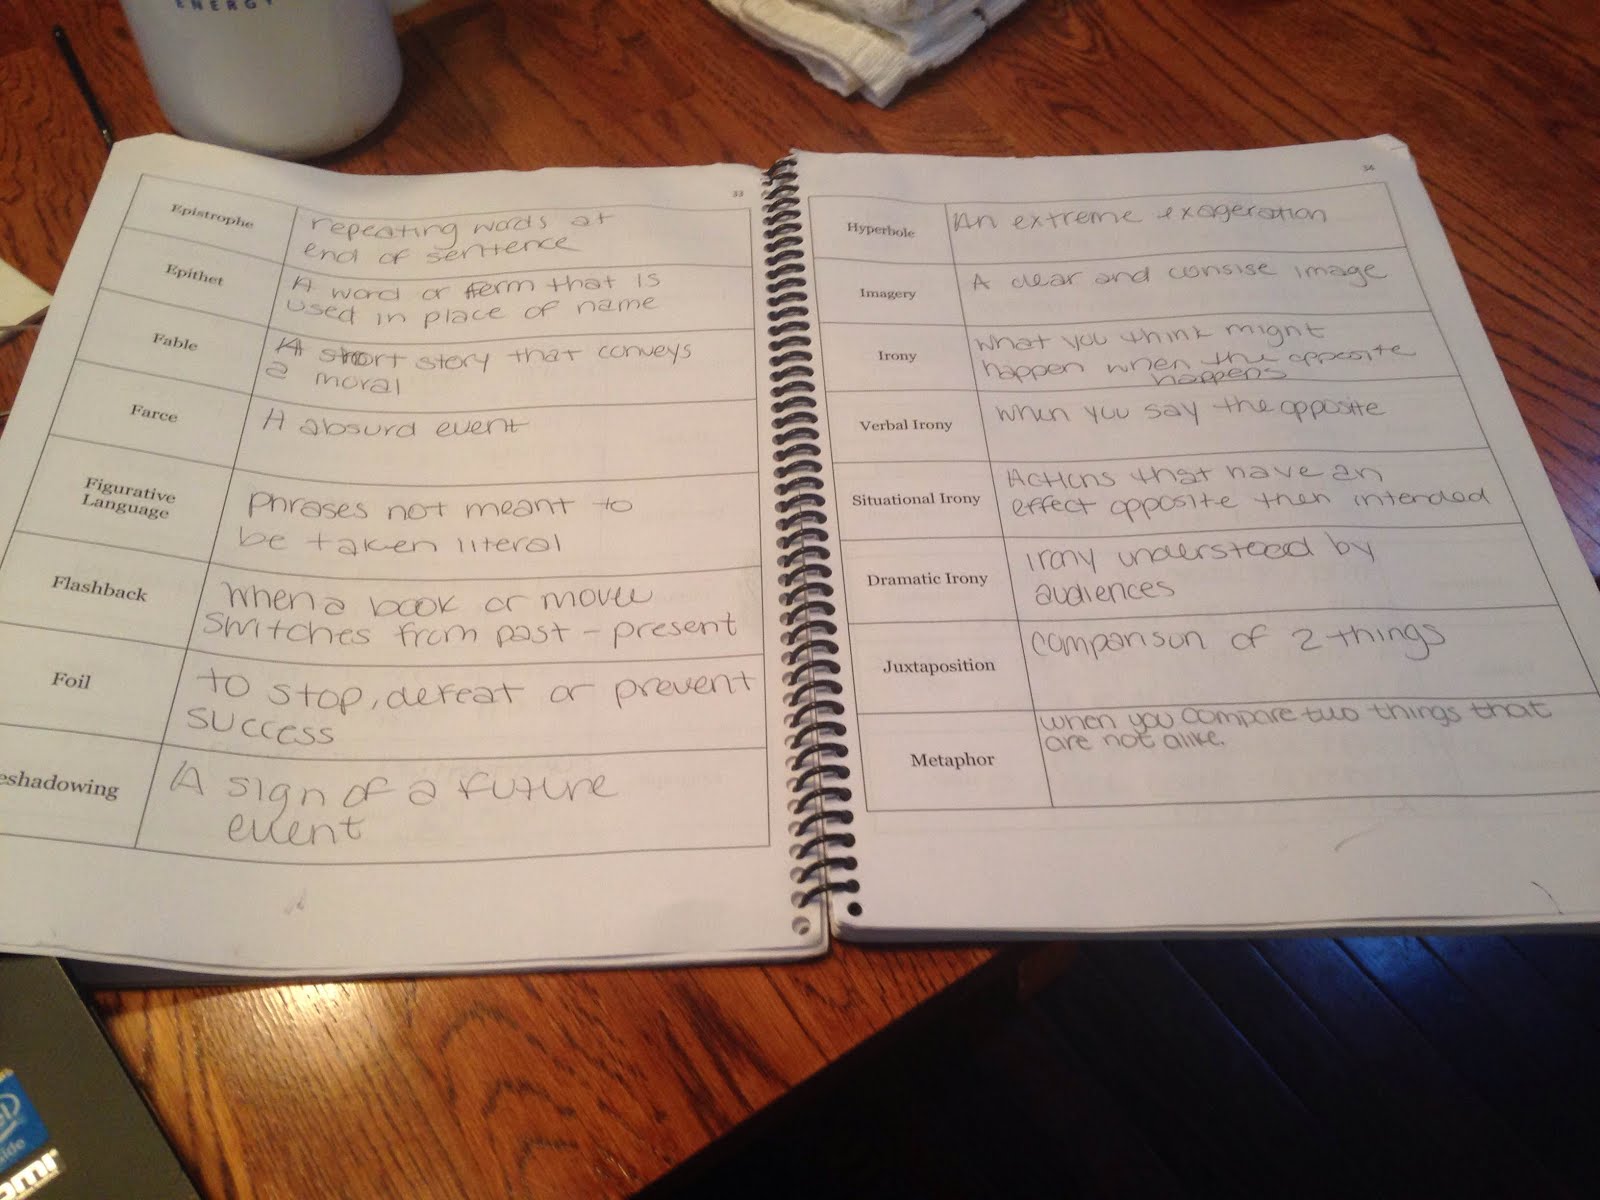 ENERGY
33
Epistrophe
repeating words at
end of sentence
Epithet
A word or term that is
used in place of name
Fable
A short story that conveys
a moral
Farce
A absurd event
Figurative
Language
phrases not meant to
be taken literal
Flashback
when a book or movie
switches from past - present
Foil
to stop, defeat or prevent
success
eshadowing
A sign of a future
event
34
Hyperbole
An extreme exageration
Imagery
A clear and consise image
Irony
what you think might
happen when the opposite
happens
Verbal Irony
when you say the opposite
Situational Irony
Actions that have an
effect opposite then intended
Dramatic Irony
irony understood by
audiences
Juxtaposition
comparison of 2 things
Metaphor
when you compare two things that
are not alike.